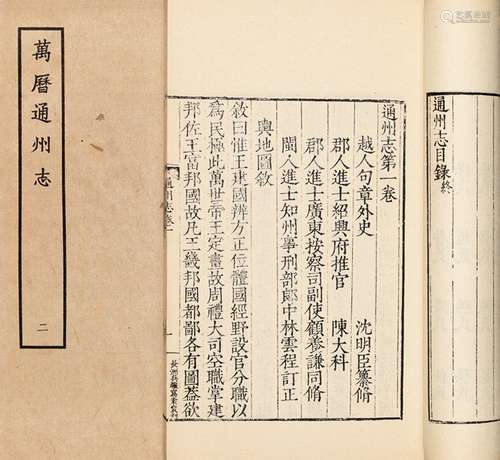 萬曆通州志
二
通州志目錄終
通州志第一卷
越人句章外史 沈明臣纂脩
郡人進士紹興府推官 陳大科
郡人進士廣東按察司副使顧養謙同脩
閩人進士知州事刑部郎中林雲程訂正
輿地圖敘
敘曰惟王建國辨方正位體國經野設官分職以
為民極此萬世帝王定畫故周禮大司空職掌建
邦佐王富邦國故凡王畿邦國都鄙各有圖葢欲
通州志卷一